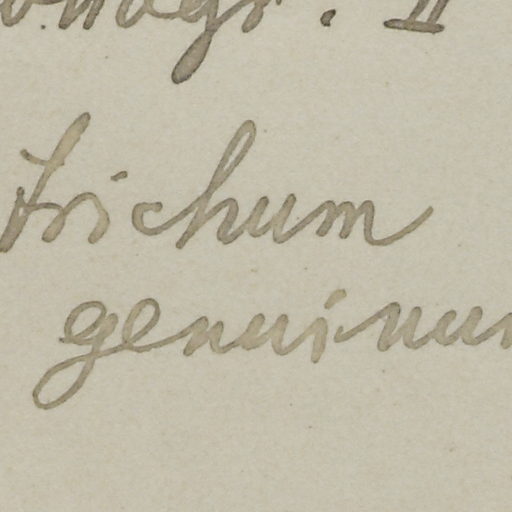 II
trichum
genuinum